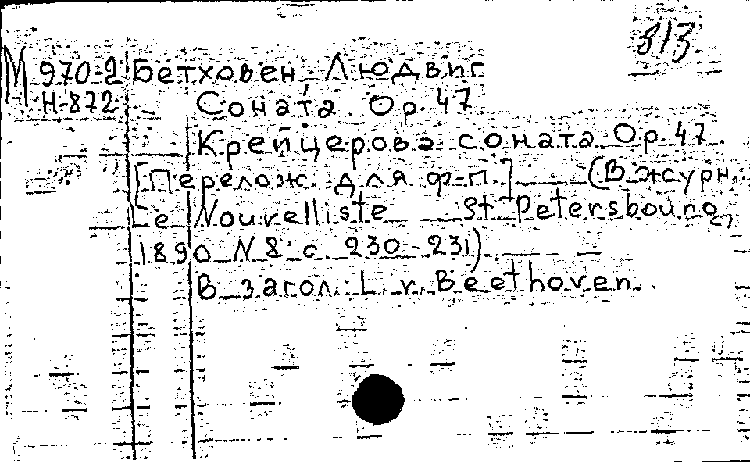 813.
М 970-2 Бетховен, Людвиг
Н-872 Соната. Op. 47
Крейцерова соната. Op. 47.
[Перелож. для ф-п.] (В журн.
Le Nouvelliste St Petersbourg,
1890 N 8 с 230-231).
В загол.: L. v. Beethoven.